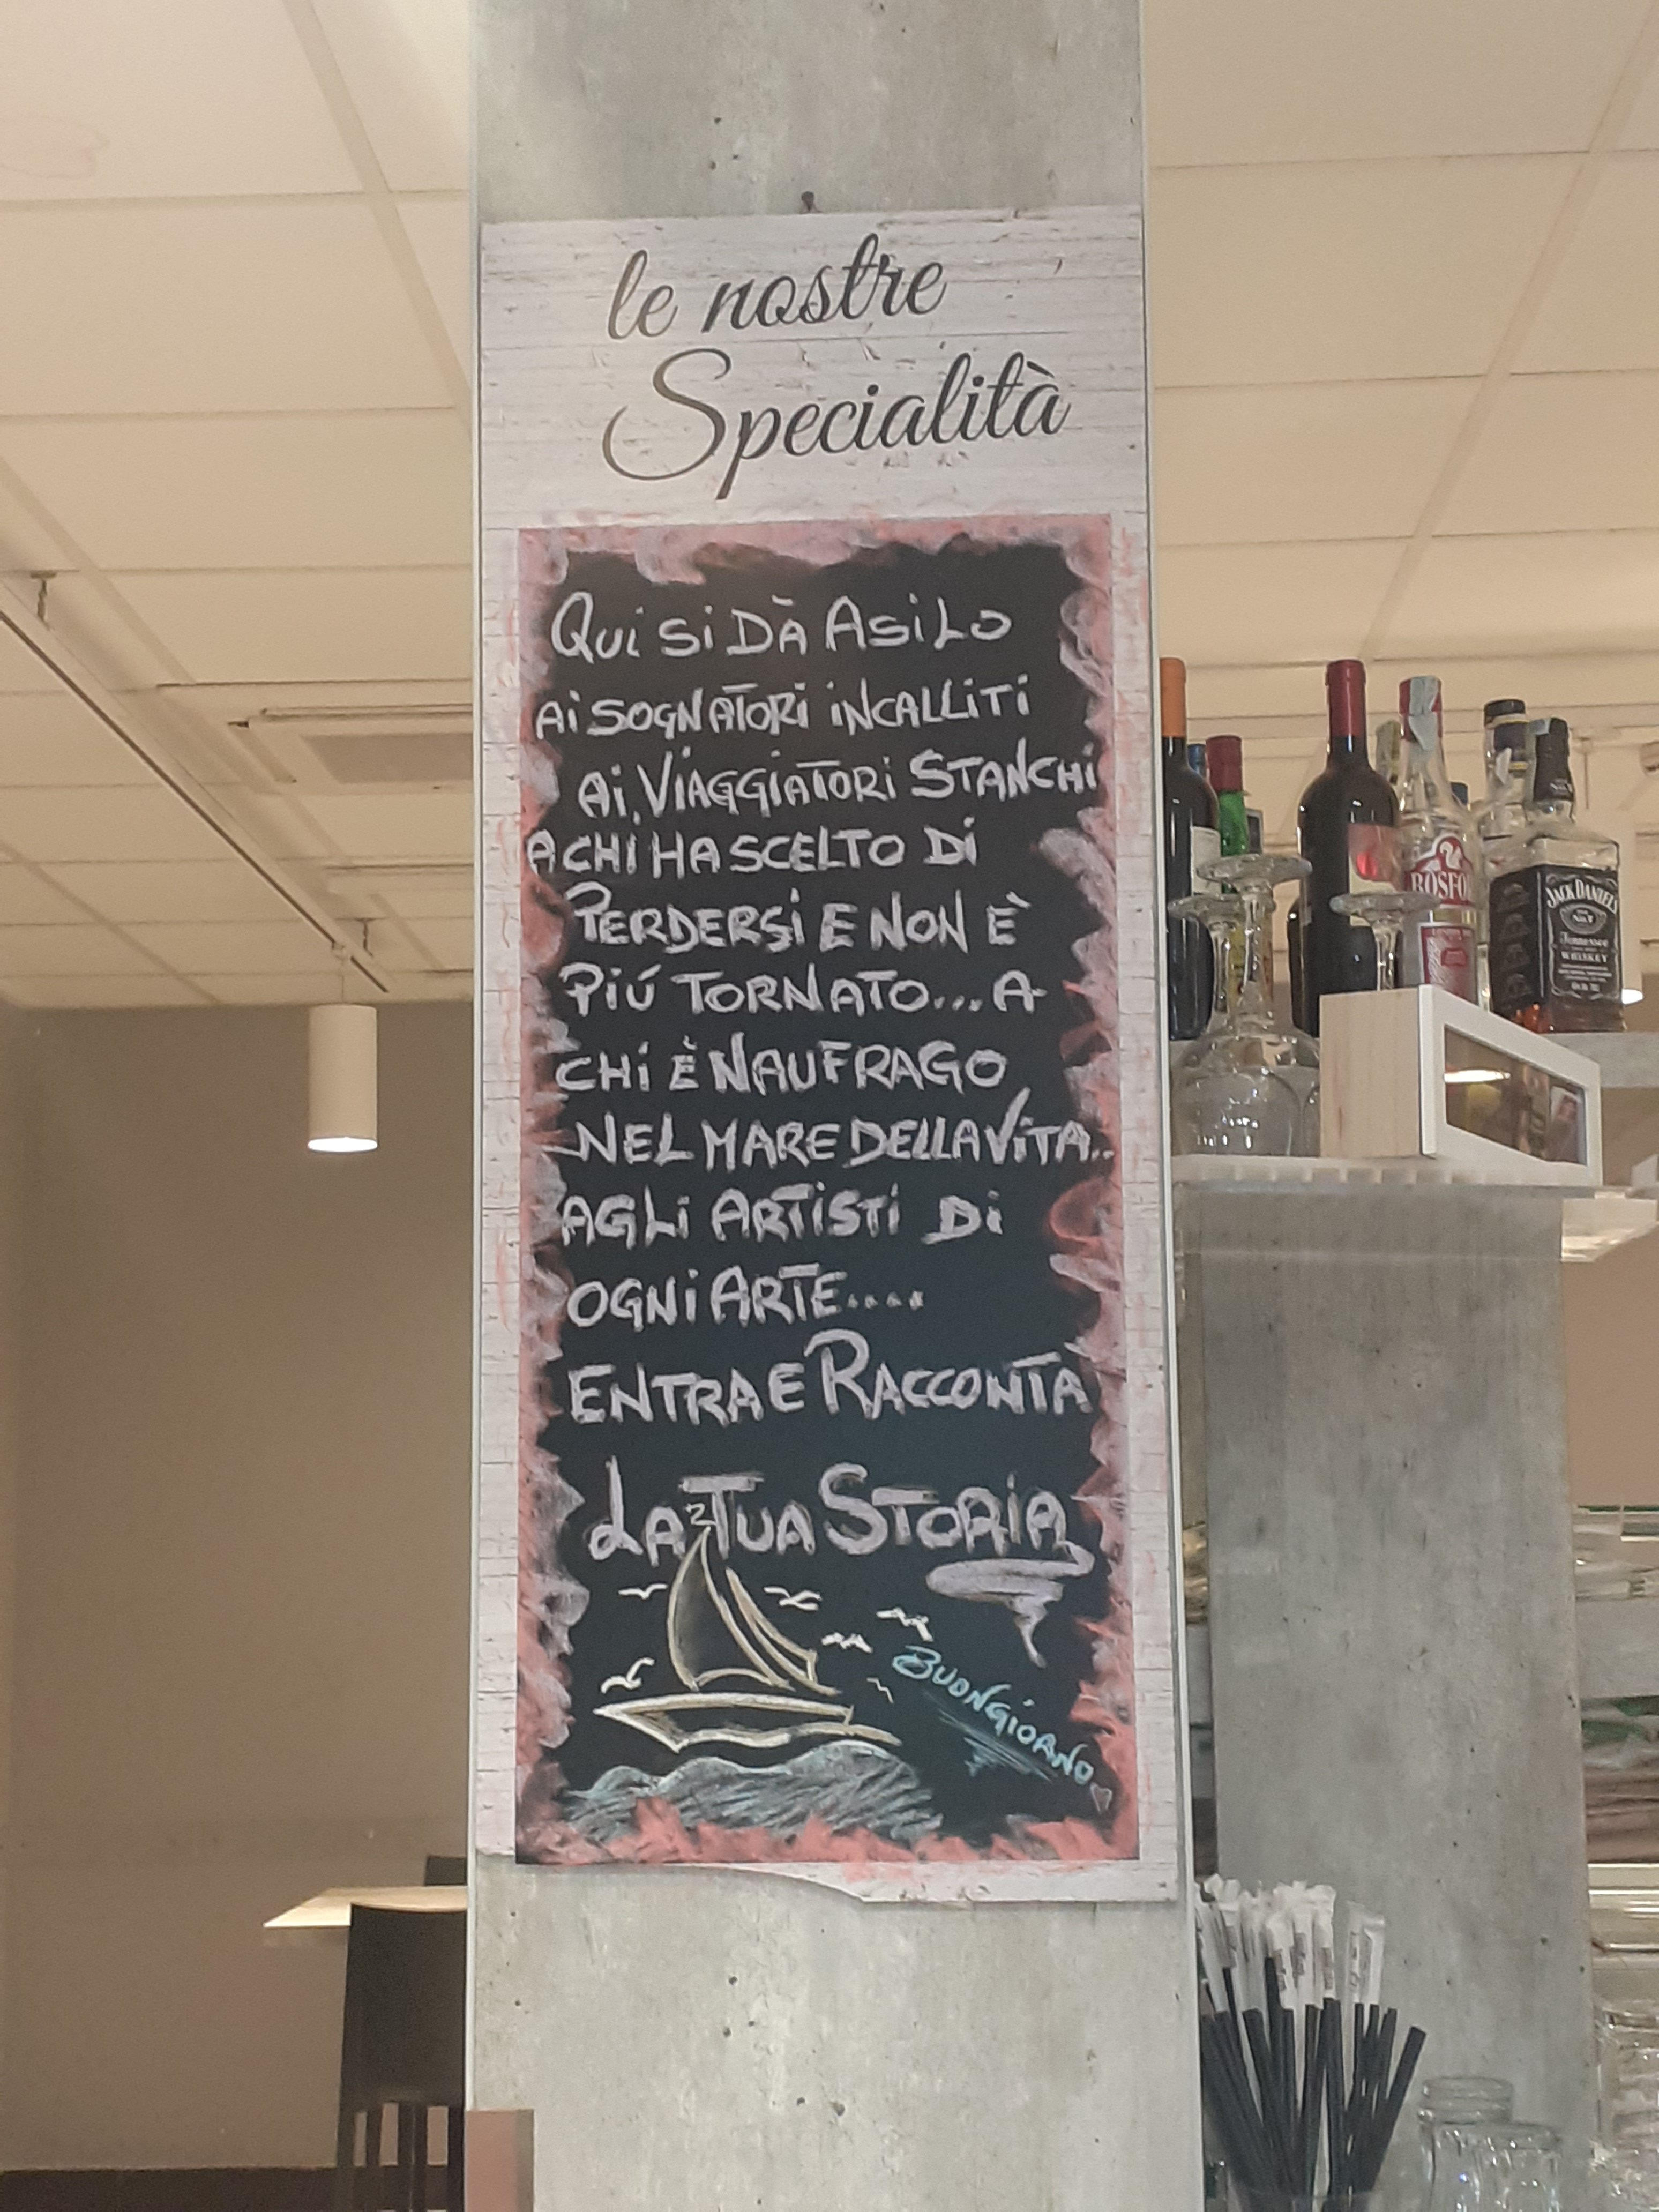 le nostre
Specialità
QUi Si DÀ ASiLO
Ai SOGNATORi iNCALLiTi
Ai ViAGGiATORi STANCHi
A CHi HA SCELTO Di
PERDERSi E NON È
PiÚ TORNATO... A
CHi È NAUFRAGO
NEL MARE DELLA ViTA..
AGLi ARTiSTi Di
OGNi ARTE....
ENTRA E RACCONTA
LA TUA STORiA
BUONGiORNO
BOSFO
JACK DANiEL'S
Tennessee
WHISKEY